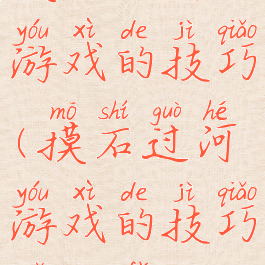 yóu xì de jì qiǎo
游戏的技巧
mō shí guò hé
(摸石过河
yóu xì de jì qiǎo
游戏的技巧